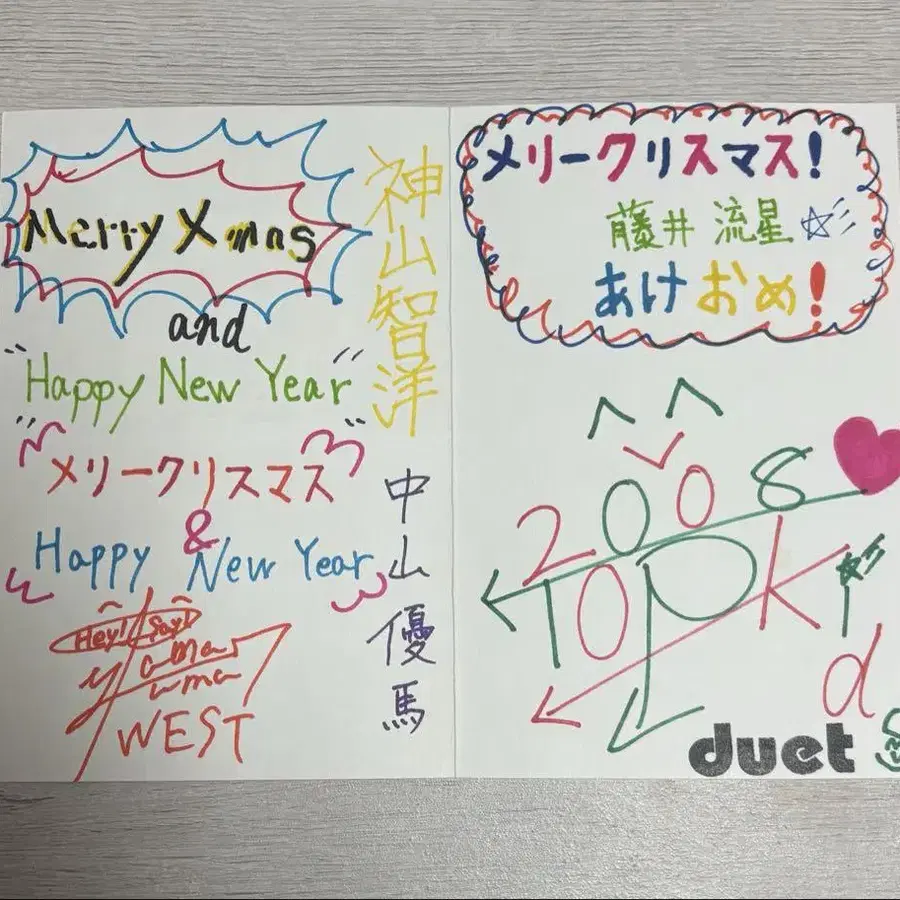 Merry Xmas
and
Happy New Year
神山智洋
メリークリスマス
&
Happy New Year
中山優馬
Hey! Say!
WEST
メリークリスマス!
藤井 流星☆
あけおめ!
2008
TOPKid
duet